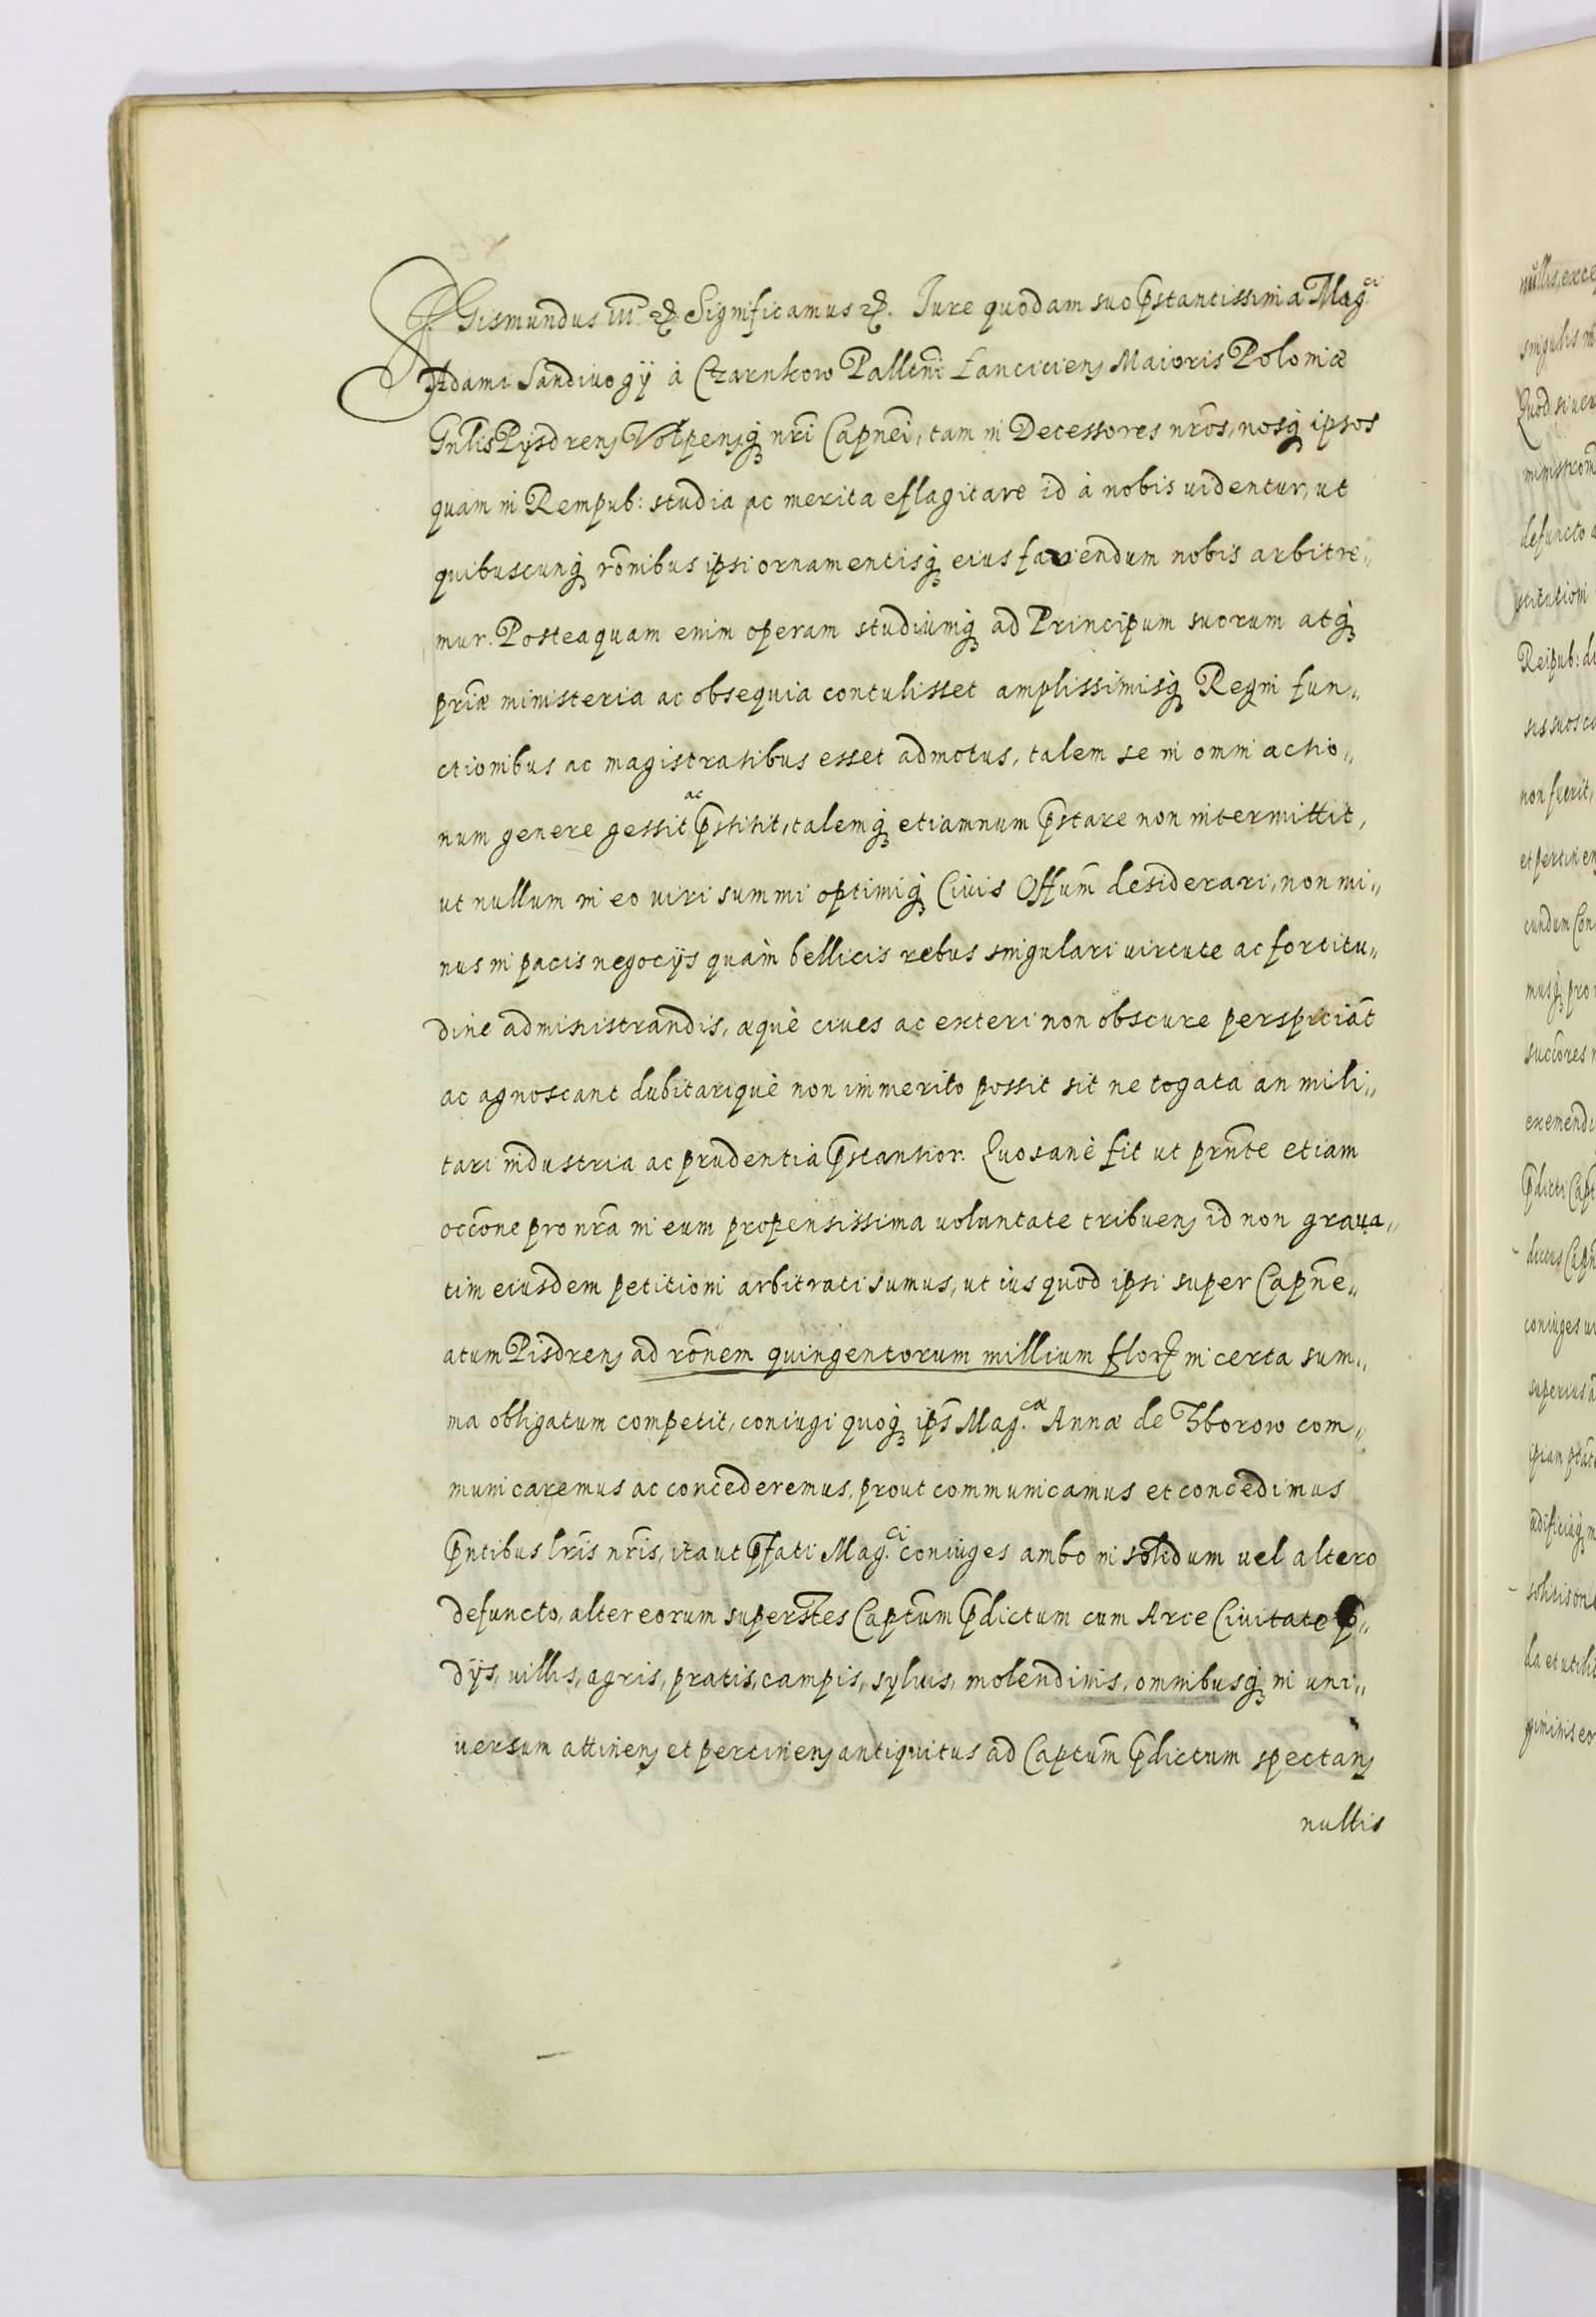 SIGismundus III. etc. Significamus etc. Iure quodam suo p̃stantissima Mag.ci
Adami Sandivogÿ à Czarnkow Pallt̃ni Lanciciens Maioris Poloniæ
Gñlis Pÿsdrens Volpensq̃ nr̃i Capnei, tam in Decessores nr̃os, nosq̃ ipsos
quam in Rempub: studia ac merita eflagitare id à nobis uidentur, ut
quibuscunq̃ rõnibus ipsi ornamentisq̃ eius favendum nobis arbitre„
mur. Posteaquam enim operam studiumq̃ ad Principum suorum atq̃
pr̃iæ ministeria ac obsequia contulisset amplissimisq̃ Regni fun„
ctionibus ac magistratibus esset admotus, talem se in omni actio„
num genere gessit ac p̃stitit, talemq̃ etiamnum p̃stare non intermittit,
ut nullum in eo viri summi optimiq̃ Civis Offum̃ desiderari, non mi„
nus in pacis negocijs quàm bellicis rebus singulari virtute ac fortitu„
dine administrandis, æquè cives ac exteri non obscure perspiciãt
ac agnoscant dubitariquè non immerito possit sit ne togata an mili„
tari industria ac prudentia p̃stantior. Quo sanè fit ut prñte etiam
occõne pro nr̃a in eum propensissima voluntate tribuens id non grava„
tim eiusdem petitioni arbitrati sumus, ut ius quod ipsi super Capñe„
atum Pisdrens ad rõnem quingentorum millium flor in certa sum„
ma obligatum competit, coniugi quoq̃ ips̃ Mag.cæ Annæ de Zborow com„
municaremus ac concederemus, prout communicamus et concedimus
p̃ntibus lr̃is nr̃is, ita ut p̃fati Mag.ci coniuges ambo in solidum vel altero
defuncto, alter eorum superstes Captum̃ p̃dictum cum Arce Civitate p̃„
dÿs, villis, agris, pratis, campis, sylvis, molendinis, omnibusq̃ in uni„
versum attinens et pertinens antiquitus ad Captum̃ p̃dictum spectans
nullis